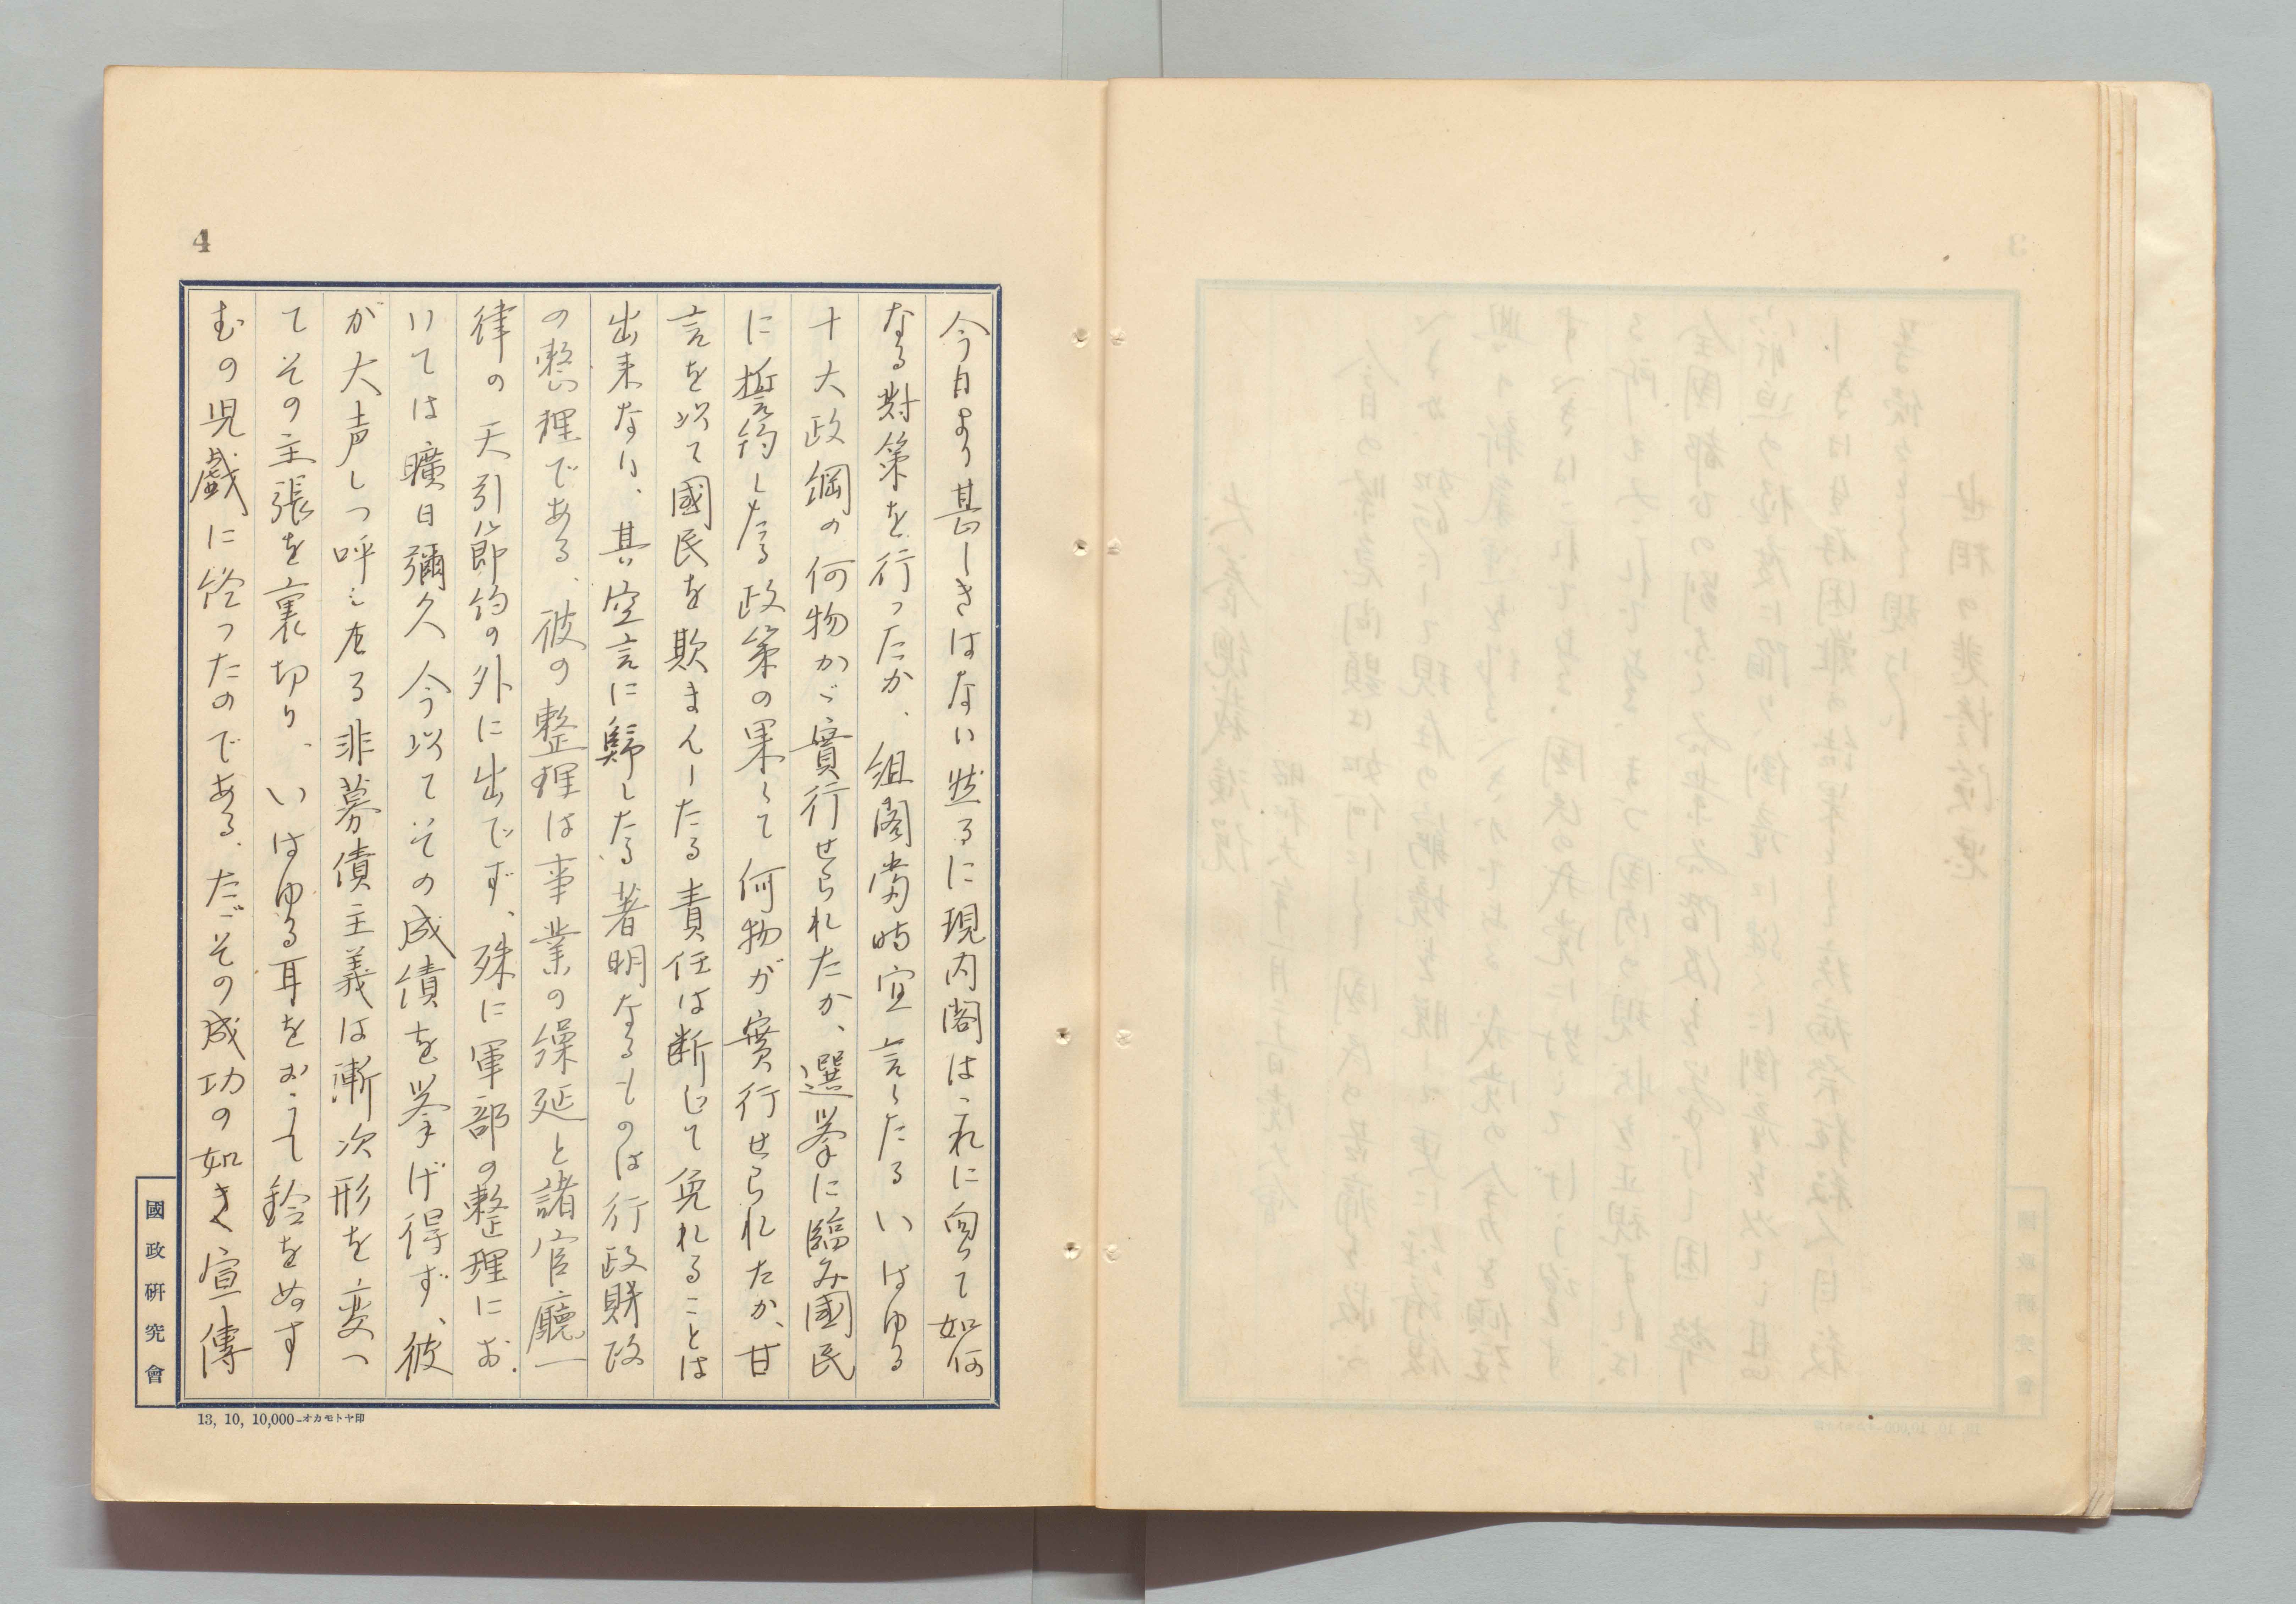 4
今日より甚しきはない然るに現内閣は之れに向って如何
なる対策を行ったか、組閣当時宣言したるいはゆる
十大政綱の何物かゞ實行せられたか、選挙に臨み國民
に誓約したる政策の果して何物が實行せられたか、甘
言を以て國民を欺まんしたる責任は断じて免れることは
出来ない、其空言に歸したる著明なるものは行政財政
の整理である、彼の整理は事業の繰延と諸官廳一
律の天引節約の外に出でず、殊に軍部の整理にお
いては曠日彌久今以てその成績を挙げ得ず、彼
が大声しつ呼しをる非募債主義は漸次形を変へ
てその主張を裏切り、いはゆる耳をおうて鈴をぬす
むの児戯に終ったのである、たゞその成功の如き宣傳
國政研究會
13, 10, 10,000-オカモトヤ印